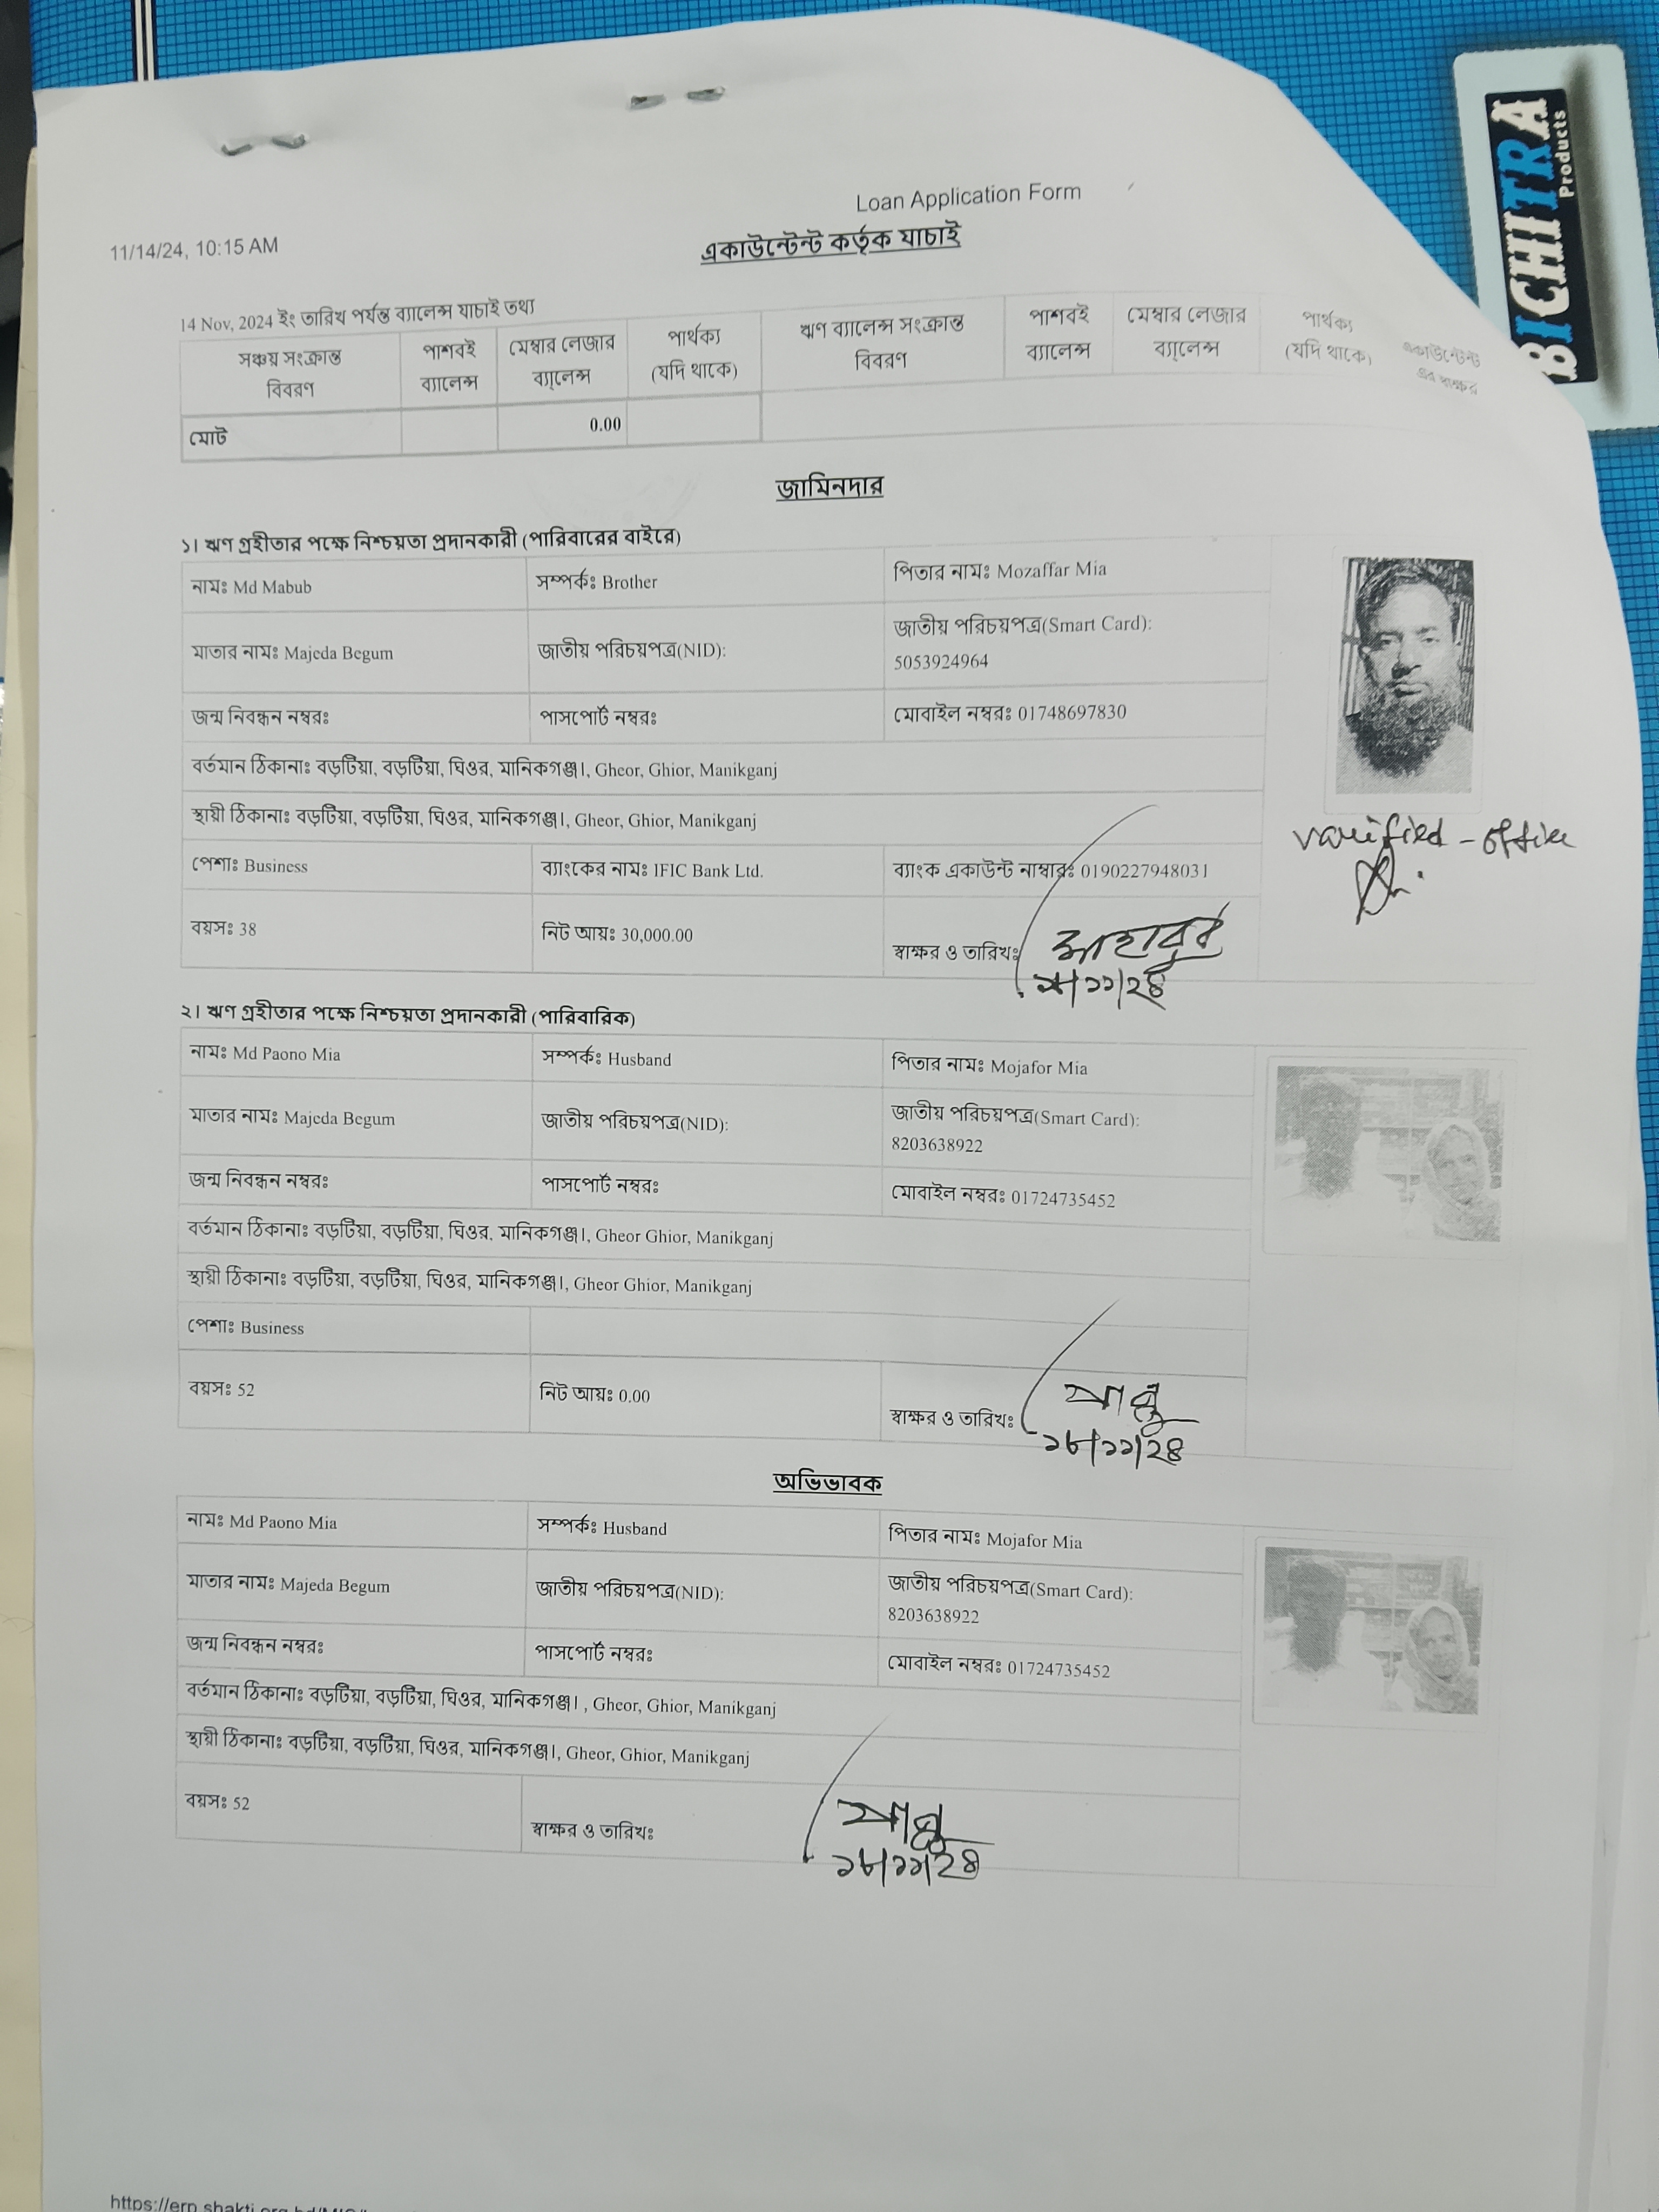 BICHITRA
Products
Loan Application Form
11/14/24, 10:15 AM
একাউন্টেন্ট কর্তৃক যাচাই
14 Nov, 2024 ইং তারিখ পর্যন্ত ব্যালেন্স যাচাই তথ্য
সঞ্চয় সংক্রান্ত বিবরণ পাশবই ব্যালেন্স মেম্বার লেজার ব্যালেন্স পার্থক্য (যদি থাকে) ঋণ ব্যালেন্স সংক্রান্ত বিবরণ পাশবই ব্যালেন্স মেম্বার লেজার ব্যালেন্স পার্থক্য (যদি থাকে) একাউন্টেন্ট এর স্বাক্ষর
মোট 0.00
জামিনদার
১। ঋণ গ্রহীতার পক্ষে নিশ্চয়তা প্রদানকারী (পারিবারের বাইরে)
নামঃ Md Mabub সম্পর্কঃ Brother পিতার নামঃ Mozaffar Mia
মাতার নামঃ Majeda Begum জাতীয় পরিচয়পত্র(NID): জাতীয় পরিচয়পত্র(Smart Card):
5053924964
জন্ম নিবন্ধন নম্বরঃ পাসপোর্ট নম্বরঃ মোবাইল নম্বরঃ 01748697830
বর্তমান ঠিকানাঃ বড়টিয়া, বড়টিয়া, ঘিওর, মানিকগঞ্জ।, Gheor, Ghior, Manikganj
স্থায়ী ঠিকানাঃ বড়টিয়া, বড়টিয়া, ঘিওর, মানিকগঞ্জ।, Gheor, Ghior, Manikganj
varified - office
পেশাঃ Business ব্যাংকের নামঃ IFIC Bank Ltd. ব্যাংক একাউন্ট নাম্বারঃ 0190227948031
বয়সঃ 38 নিট আয়ঃ 30,000.00 স্বাক্ষর ও তারিখঃ মাহাবুব
২। ঋণ গ্রহীতার পক্ষে নিশ্চয়তা প্রদানকারী (পারিবারিক)
নামঃ Md Paono Mia সম্পর্কঃ Husband পিতার নামঃ Mojafor Mia
মাতার নামঃ Majeda Begum জাতীয় পরিচয়পত্র(NID): জাতীয় পরিচয়পত্র(Smart Card):
8203638922
জন্ম নিবন্ধন নম্বরঃ পাসপোর্ট নম্বরঃ মোবাইল নম্বরঃ 01724735452
বর্তমান ঠিকানাঃ বড়টিয়া, বড়টিয়া, ঘিওর, মানিকগঞ্জ।, Gheor Ghior, Manikganj
স্থায়ী ঠিকানাঃ বড়টিয়া, বড়টিয়া, ঘিওর, মানিকগঞ্জ।, Gheor Ghior, Manikganj
পেশাঃ Business
বয়সঃ 52 নিট আয়ঃ 0.00 স্বাক্ষর ও তারিখঃ
১৮/১১/২৪
অভিভাবক
নামঃ Md Paono Mia সম্পর্কঃ Husband পিতার নামঃ Mojafor Mia
মাতার নামঃ Majeda Begum জাতীয় পরিচয়পত্র(NID): জাতীয় পরিচয়পত্র(Smart Card):
8203638922
জন্ম নিবন্ধন নম্বরঃ পাসপোর্ট নম্বরঃ মোবাইল নম্বরঃ 01724735452
বর্তমান ঠিকানাঃ বড়টিয়া, বড়টিয়া, ঘিওর, মানিকগঞ্জ। , Gheor, Ghior, Manikganj
স্থায়ী ঠিকানাঃ বড়টিয়া, বড়টিয়া, ঘিওর, মানিকগঞ্জ।, Gheor, Ghior, Manikganj
বয়সঃ 52 স্বাক্ষর ও তারিখঃ
১৮/১১/২৪